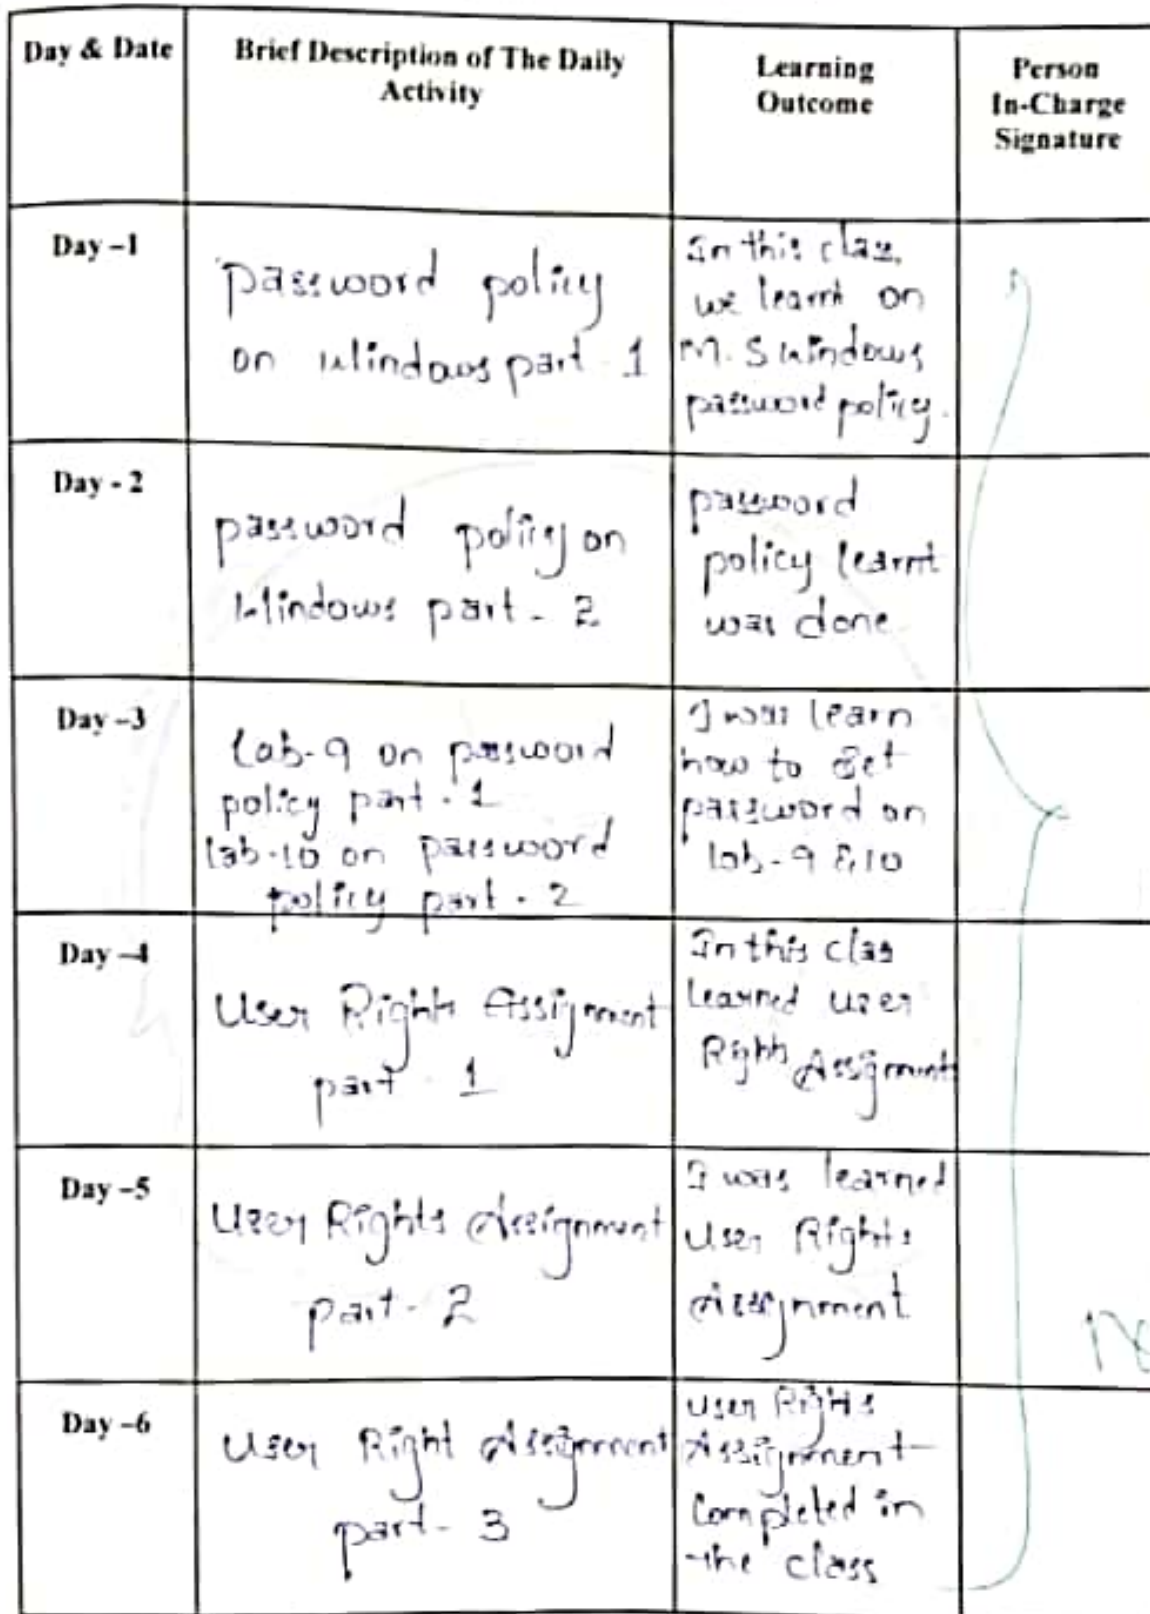 Day & Date
Brief Description of The Daily
Activity
Learning
Outcome
Person
In-Charge
Signature
Day –1
password policy
on Windows part - 1
In this class,
we learnt on
M.S Windows
password policy.
Day - 2
password policy on
Windows part - 2
password
policy learnt
was done
Day –3
lab-9 on password
policy part - 1
lab-10 on password
policy part - 2
I was learn
how to set
password on
lab-9 & 10
Day –4
User Rights Assignment
part - 1
In this class
Learned user
Rights Assignment
Day –5
User Rights Assignment
part - 2
I was learned
User Rights
Assignment
Day –6
User Right Assignment
part - 3
User Rights
Assignment
Completed in
the class